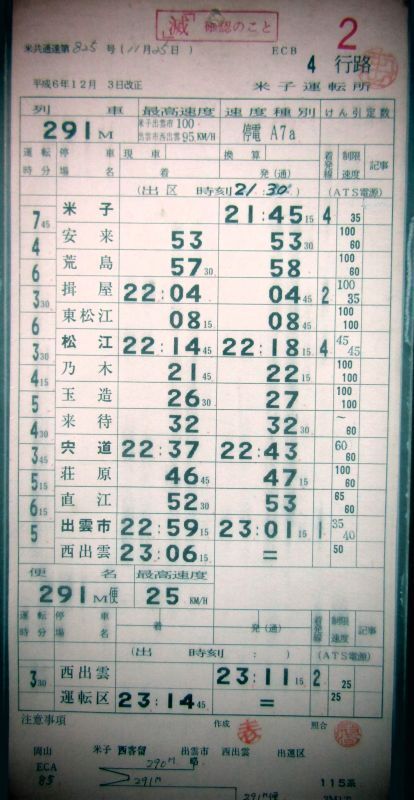 滅 確認のこと
米共通達第825号(11月25日)
ECB
2
4 行路
平成6年12月 3日改正
米子運転所
列 車 最高速度 速度種別 けん引定数
291M 米子出雲市100 出雲市西出雲95KM/H 停電 A7a
運転時分 停車場名 現車 着 換算 発(通) 着発線 制限速度 記事
(出区 時刻21:30) (ATS電源)
米子 21:45 15 4 35
7 45 安来 53 53 30 100 60
4 荒島 57 30 58 100 60
6 揖屋 22:04 04 45 2 100 35
3 30 東松江 08 15 08 45 100 100
6 松江 22:14 45 22:18 15 4 45 45
3 30 乃木 21 45 22 15 100 100
4 15 玉造 26 30 27 100 100
5 来待 32 32 30 ~ 60
4 30 宍道 22:37 22:43 60 60
3 45 荘原 46 45 47 15 100 60
5 15 直江 52 30 53 65 60
6 15 出雲市 22:59 15 23:01 15 1 35 40
5 西出雲 23:06 15 = 50
便名 最高速度
291M便 25 KM/H
運転時分 停車場名 着 発(通) 着発線 制限速度 記事
(出 時刻 : ) (ATS電源)
西出雲 23:11 15 2 25
3 30 運転区 23:14 45 = 25
注意事項 作成 照合
岡山 米子 西客留 出雲市 西出雲 出運区
ECA 290M 略
85 291M 115系
291M便